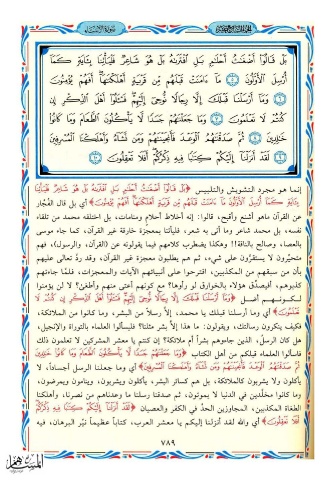 سورة الأنبياء
بَلْ قَالُوا أَضْغَاثُ أَحْلَامٍ بَلِ افْتَرَاهُ بَلْ هُوَ شَاعِرٌ فَلْيَأْتِنَا بِآيَةٍ كَمَا
أُرْسِلَ الْأَوَّلُونَ ٥ مَا آمَنَتْ قَبْلَهُم مِّن قَرْيَةٍ أَهْلَكْنَاهَا أَفَهُمْ يُؤْمِنُونَ
٦ وَمَا أَرْسَلْنَا قَبْلَكَ إِلَّا رِجَالًا نُّوحِي إِلَيْهِمْ فَاسْأَلُوا أَهْلَ الذِّكْرِ إِن
كُنتُمْ لَا تَعْلَمُونَ ٧ وَمَا جَعَلْنَاهُمْ جَسَدًا لَّا يَأْكُلُونَ الطَّعَامَ وَمَا كَانُوا
خَالِدِينَ ٨ ثُمَّ صَدَقْنَاهُمُ الْوَعْدَ فَأَنجَيْنَاهُمْ وَمَن نَّشَاءُ وَأَهْلَكْنَا الْمُسْرِفِينَ
٩ لَقَدْ أَنزَلْنَا إِلَيْكُمْ كِتَابًا فِيهِ ذِكْرُكُمْ أَفَلَا تَعْقِلُونَ ١٠
إنما هو مجرد التشويش والتلبيس ﴿بَلْ قَالُوا أَضْغَاثُ أَحْلَامٍ بَلِ افْتَرَاهُ بَلْ هُوَ شَاعِرٌ فَلْيَأْتِنَا
بِآيَةٍ كَمَا أُرْسِلَ الْأَوَّلُونَ مَا آمَنَتْ قَبْلَهُم مِّن قَرْيَةٍ أَهْلَكْنَاهَا أَفَهُمْ يُؤْمِنُونَ﴾ أي بل قال الفجار
عن القرآن ماهو أشنع وأقبح، قالوا: إنه أخلاط أحلام ومنامات، بل اختلقه محمد من تلقاء
نفسه، بل محمد شاعر وما أتى به شعر، فليأتنا بمعجزة خارقة غير القرآن، كما جاء موسى
بالعصا، وصالح بالناقة!! وهكذا يضطرب كلامهم فيما يقولونه عن (القرآن، والرسول)، فهم
متحيرون لا يستقرون على شيء، ثم هم يطلبون معجزة غير القرآن، وقد ردّ تعالى عليهم
بأن من سبقهم من المكذبين، اقترحوا على أنبيائهم الآيات والمعجزات، فلما جاءتهم
كذبوهم، أفيصدّق هؤلاء بالخوارق لو رأوها؟ مع كونهم أعتى منهم وأطغى؟ لا لن يؤمنوا
لكونهم أضل ﴿وَمَا أَرْسَلْنَا قَبْلَكَ إِلَّا رِجَالًا نُّوحِي إِلَيْهِمْ فَاسْأَلُوا أَهْلَ الذِّكْرِ إِن كُنتُمْ لَا
تَعْلَمُونَ﴾ أي وما أرسلنا قبلك يا محمد، إلا رسلاً من البشر، وما كانوا من الملائكة،
فكيف ينكرون رسالتك، ويقولون: ما هذا إلا بشر مثلنا؟ فليسألوا العلماء بالتوراة والإنجيل،
هل كان الرسل، الذين جاءوهم بشراً أم ملائكة؟ إن كنتم يا معشر المشركين لا تعلمون ذلك
فاسألوا العلماء قبلكم من أهل الكتاب ﴿وَمَا جَعَلْنَاهُمْ جَسَدًا لَّا يَأْكُلُونَ الطَّعَامَ وَمَا كَانُوا خَالِدِينَ
ثُمَّ صَدَقْنَاهُمُ الْوَعْدَ فَأَنجَيْنَاهُمْ وَمَن نَّشَاءُ وَأَهْلَكْنَا الْمُسْرِفِينَ﴾ أي وما جعلنا الرسل أجساداً، لا
يأكلون ولا يشربون كالملائكة، بل هم كسائر البشر، يأكلون ويشربون، وينامون ويمرضون،
وما كانوا مخلّدين في الدنيا لا يموتون، ثم صدقنا رسلنا ما وعدناهم من نصرنا، وأهلكنا
الطغاة المكذبين، المجاوزين الحدّ في الكفر والعصيان ﴿لَقَدْ أَنزَلْنَا إِلَيْكُمْ كِتَابًا فِيهِ ذِكْرُكُمْ
أَفَلَا تَعْقِلُونَ﴾ أي والله لقد أنزلنا إليكم يا معشر العرب، كتاباً عظيماً نيّر البرهان، فيه
٧٨٩